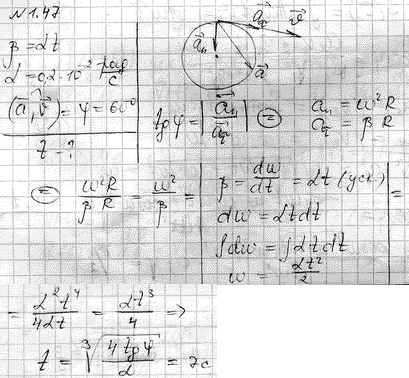 N 1.47
β = αt
α = 0,2·10⁻² рад/с
(a⃗, v⃗) = φ = 60°
t - ?
a⃗τ v⃗
a⃗n
a⃗
tg φ = |a⃗n / a⃗τ| ⊜
an = ω²R
aτ = β R
⊜ ω²R / β R = ω² / β =
β = dω/dt = αt (уск.)
dω = αt dt
∫dω = ∫αt dt
ω = αt²/2
=
= α²t⁴ / 4αt = αt³ / 4 =>
t = ³√(4 tg φ / α) = 7 с